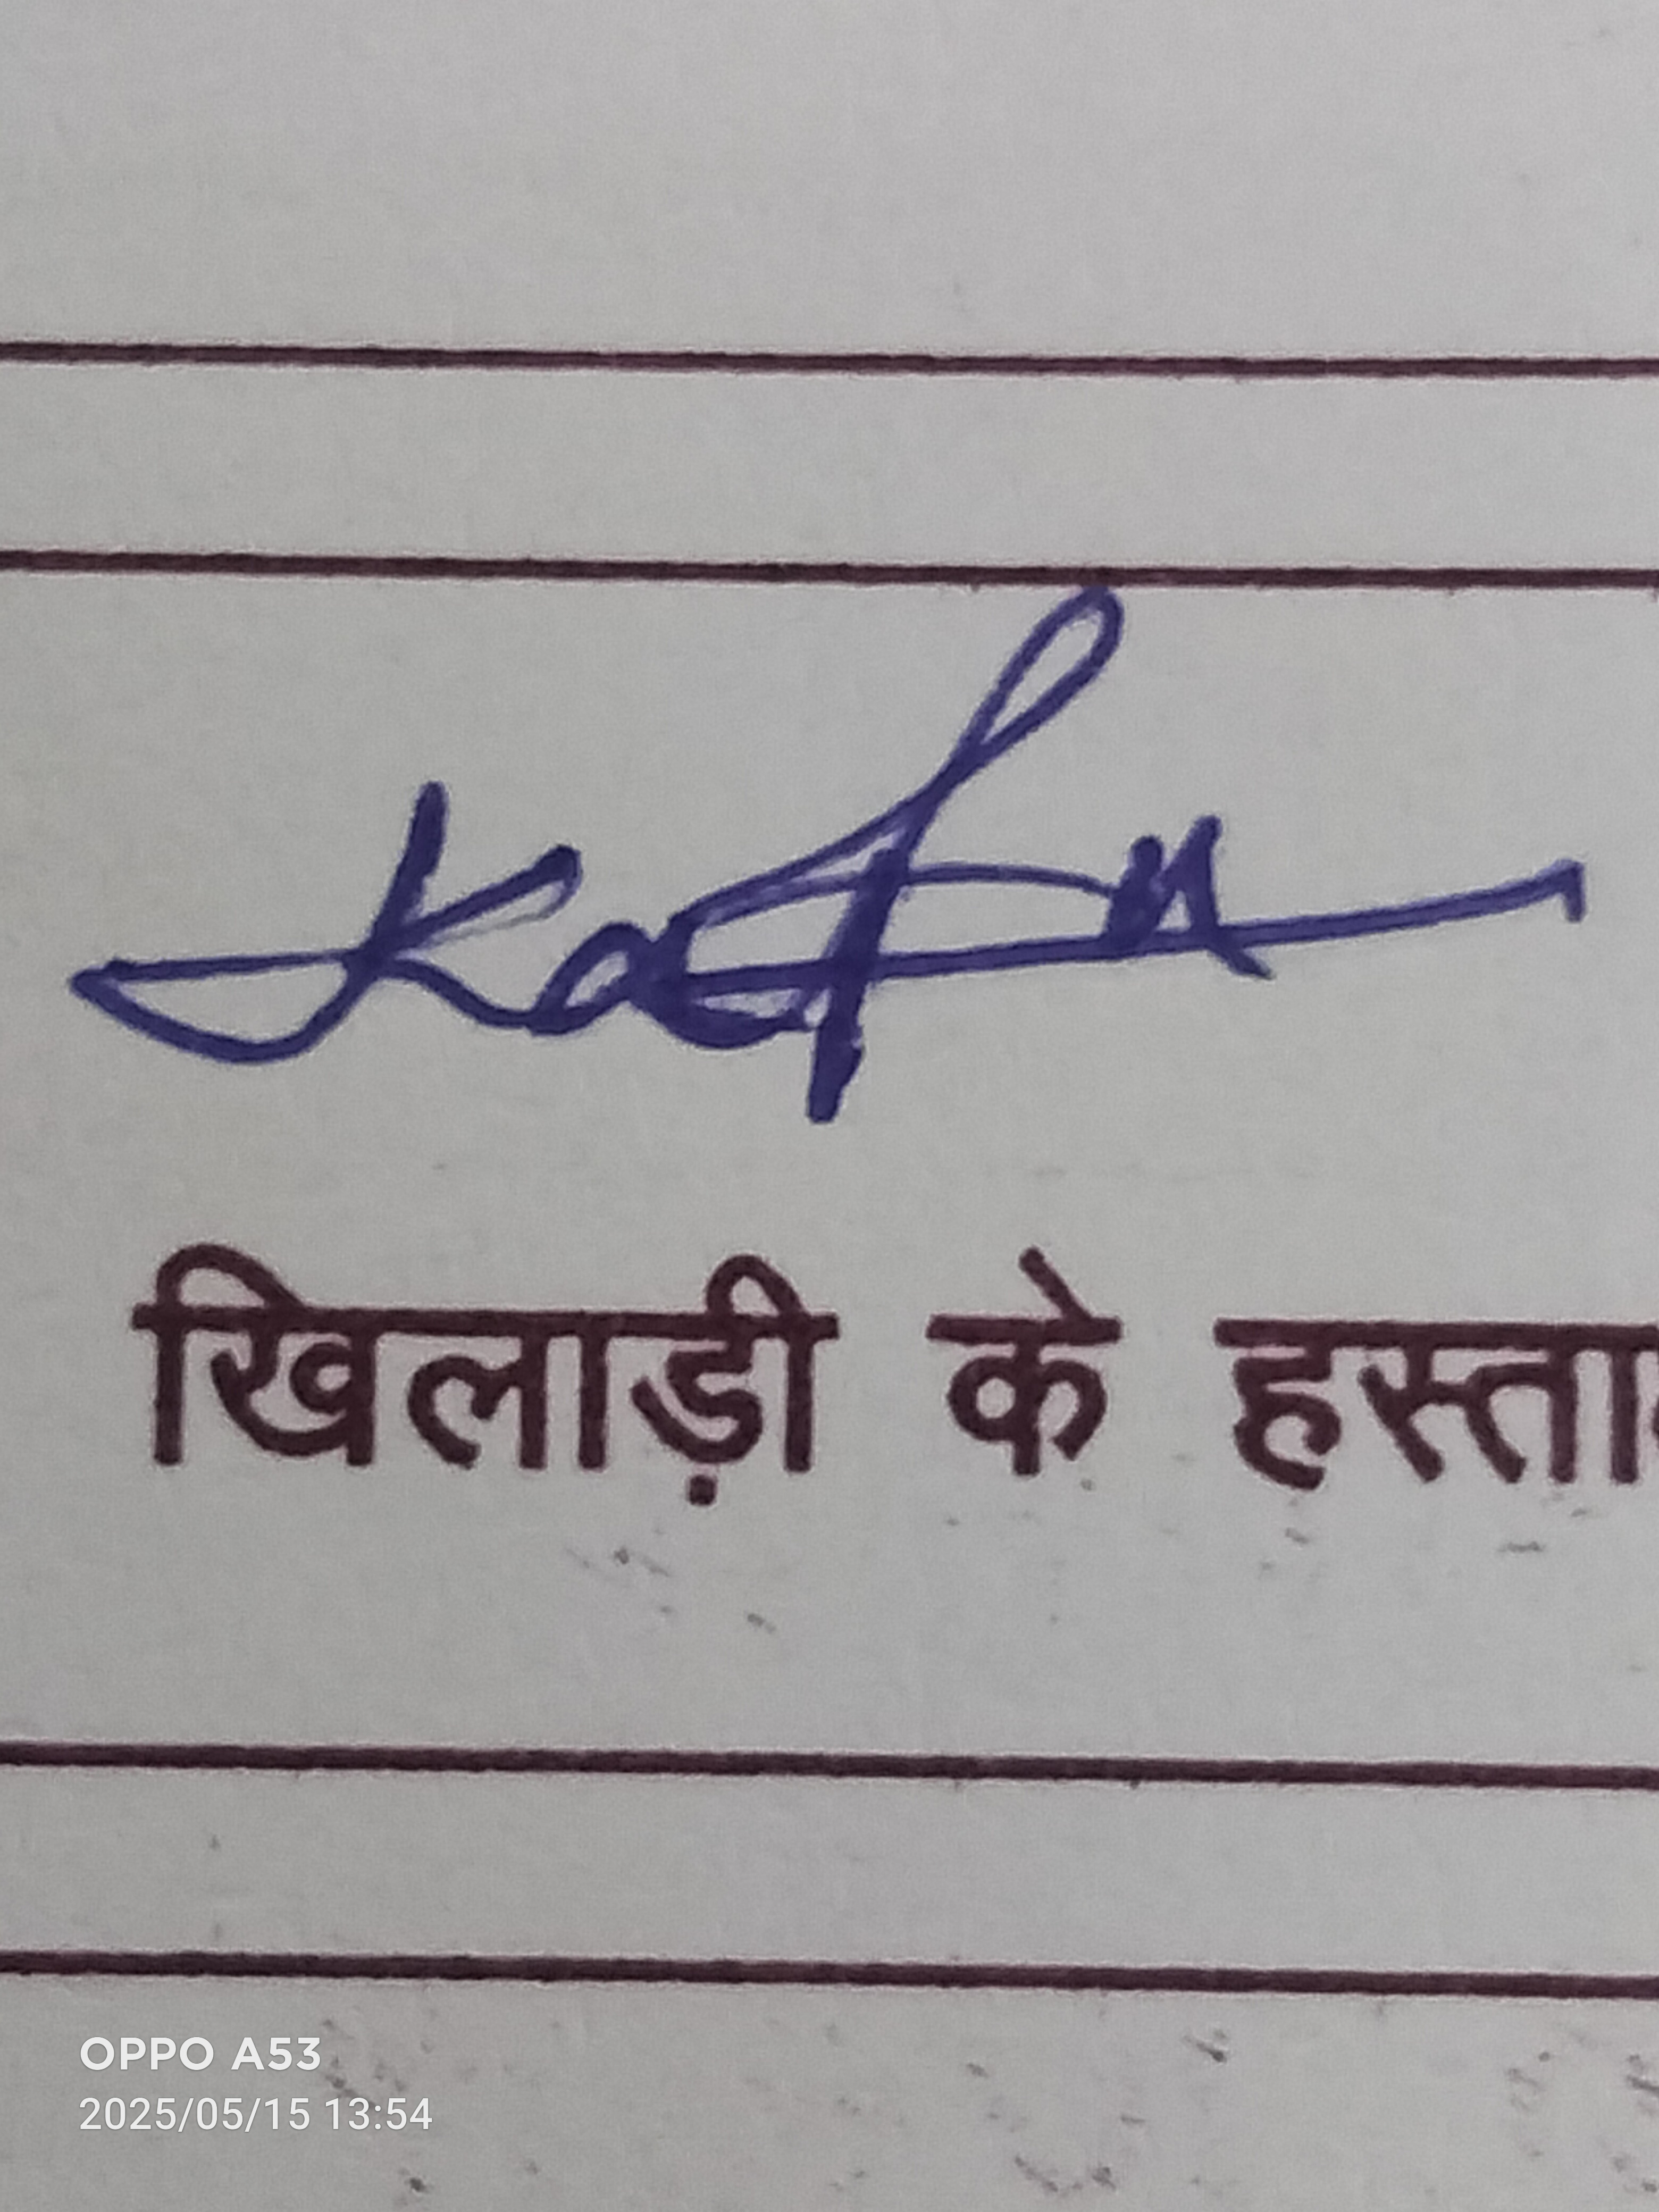 खिलाड़ी के हस्ता
OPPO A53
2025/05/15 13:54